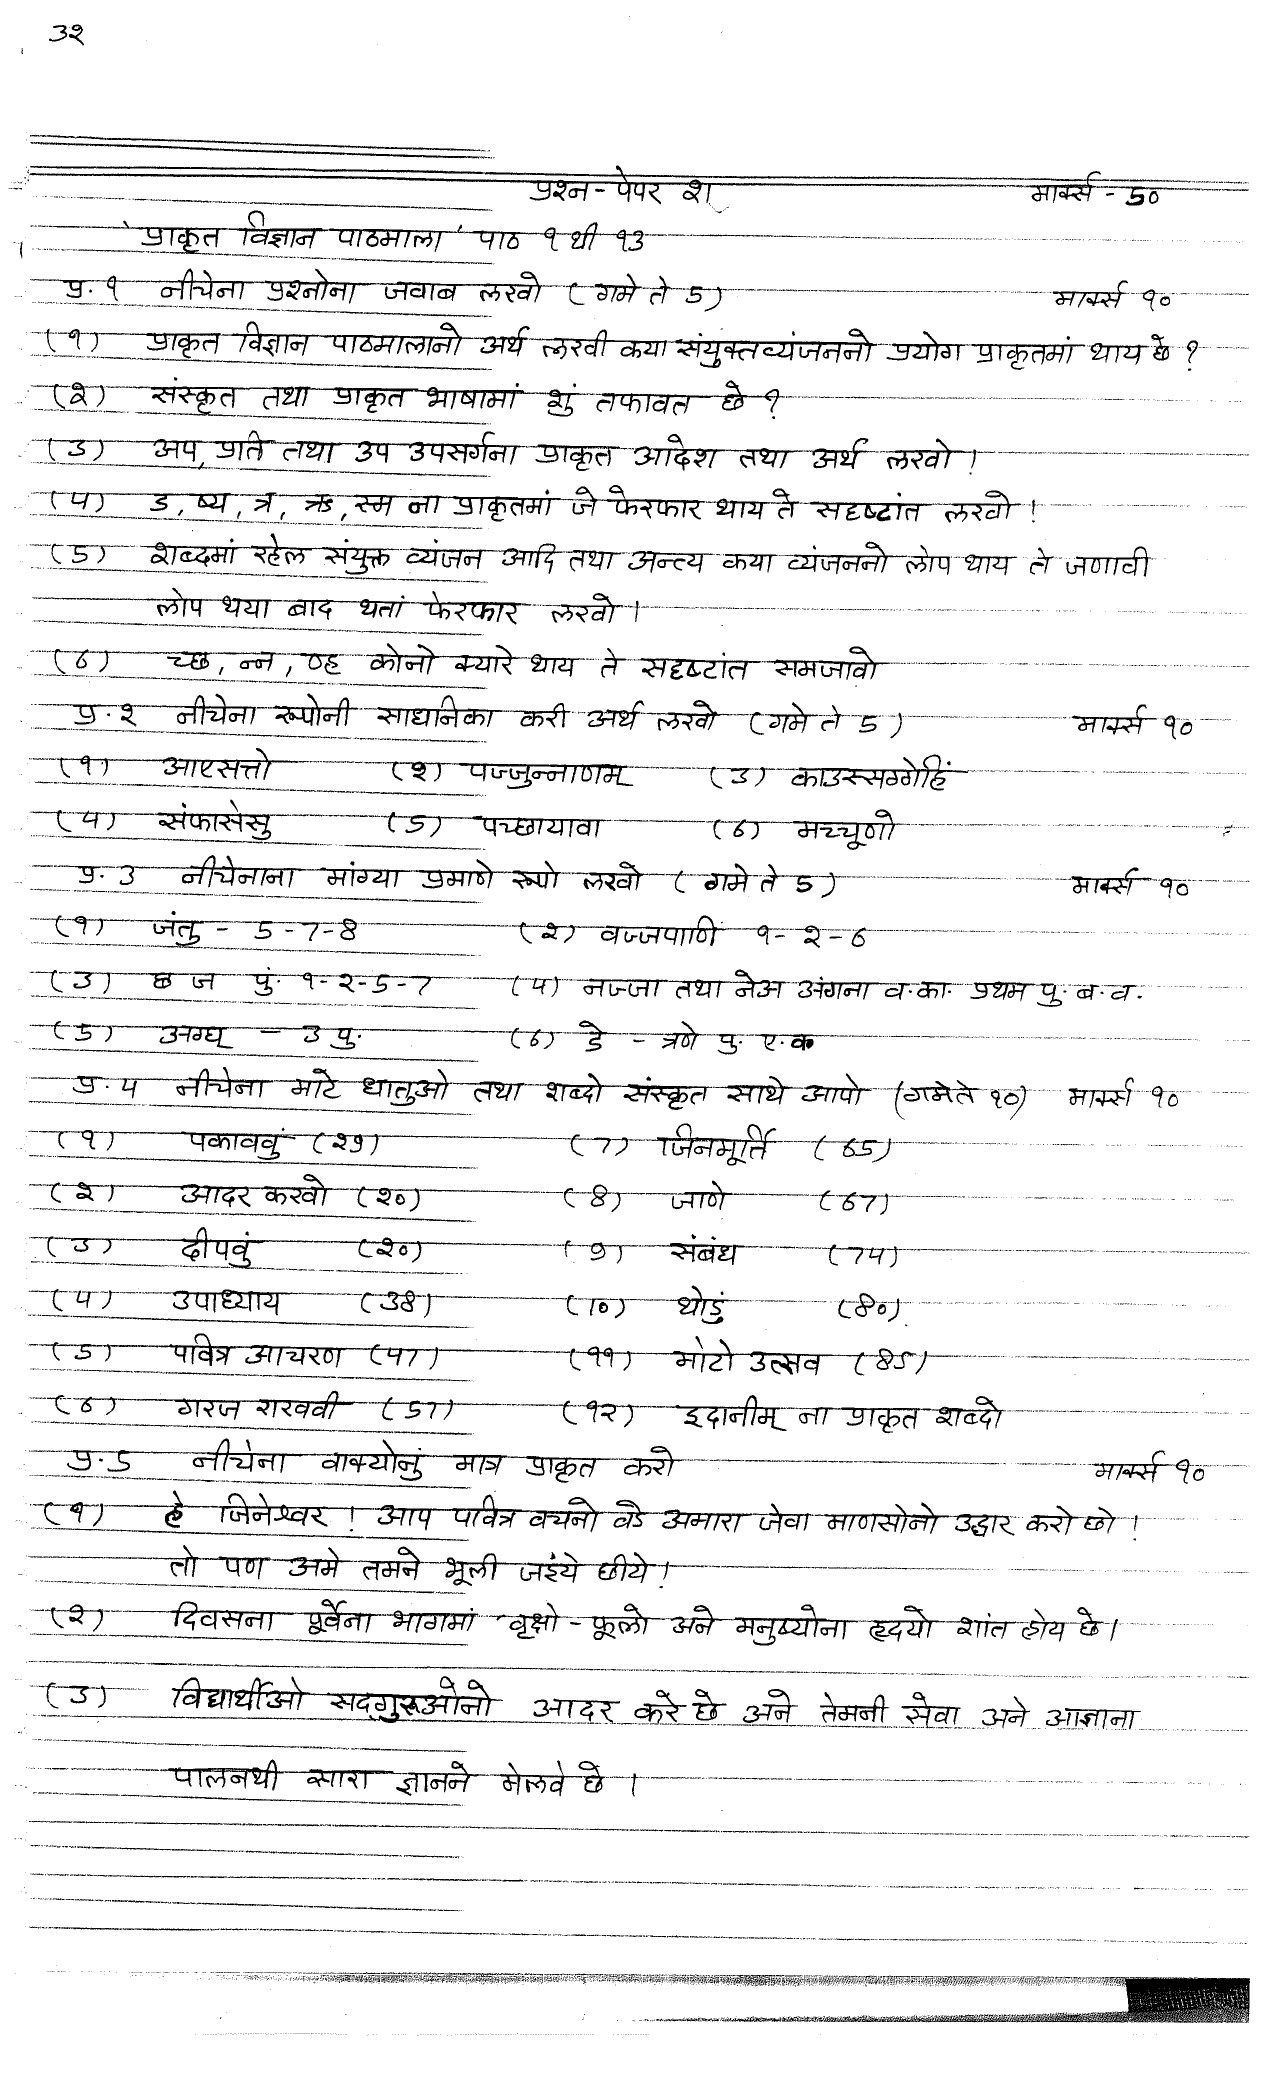 ૩૨
प्रश्न-पेपर २ा मार्क्स - ५०
'प्राकृत विज्ञान पाठमाला' पाठ १ थी १३
प्र. १ नीचेना प्रश्नोना जवाब लखो (गमे ते ५) मार्क्स १०
(१) प्राकृत विज्ञान पाठमालानो अर्थ लखी कया संयुक्तव्यंजननो प्रयोग प्राकृतमां थाय छे ?
(२) संस्कृत तथा प्राकृत भाषामां शुं तफावत छे ?
(૩) अप, प्रति तथा उप उपसर्गना प्राकृत आदेश तथा अर्थ लखो !
(૫) ड, ष्य, त्र, ऋ, स्म ना प्राकृतमां जे फेरफार थाय ते सदृष्टांत लखो !
(5) शब्दमां रहेल संयुक्त व्यंजन आदि तथा अन्त्य कया व्यंजननो लोप थाय ते जणावी
लोप थया बाद थतां फेरफार लखो ।
(૬) च्छ, न्न, ण्ह कोनो क्यारे थाय ते सदृष्टांत समजावो
प्र. २ नीचेना रूपोनी साधनिका करी अर्थ लखो (गमे ते 5) मार्क्स १०
(१) आएसत्तो (२) पज्जुन्नाणम् (૩) काउस्सग्गेहिं
(૫) संफासेसु (5) पच्छायावा (૬) मच्चूणो
प्र. ૩ नीचेनाना मांग्या प्रमाणे रूपो लखो (गमे ते 5) मार्क्स १०
(१) जंतु - 5-7-8 (२) वज्जपाणि १-२-6
(૩) छ ज पुं. १-२-5-7 (૫) नज्जा तथा नेअ अंगना व.का. प्रथम पु. ब.व.
(5) अग्घ् - ૩ पु. (૬) डे - त्रणे पु. ए.क
प्र. ૫ नीचेना माटे धातुओ तथा शब्दो संस्कृत साथे आपो (गमेते १०) मार्क्स १०
(१) पकाववुं (२9) (7) जिनमूर्ति (65)
(२) आदर करवो (२०) (8) जाणे (67)
(૩) दीपवुं (२०) (9) संबंध (7૫)
(૫) उपाध्याय (૩8) (10) थोडुं (8०)
(5) पवित्र आचरण (૫7) (११) मोटो उत्सव (85)
(૬) गरज राखवी (57) (१२) इदानीम् ना प्राकृत शब्दो
प्र. 5 नीचेना वाक्योनुं मात्र प्राकृत करो मार्क्स १०
(१) हे जिनेश्वर ! आप पवित्र वचनो वडे अमारा जेवा माणसोनो उद्धार करो छो !
तो पण अमे तमने भूली जइये छीये !
(२) दिवसना पूर्वना भागमां वृक्षो - फूलो अने मनुष्योना हृदयो शांत होय छे ।
(૩) विद्यार्थीओ सद्गुरूओनो आदर करे छे अने तेमनी सेवा अने आज्ञाना
पालनथी सारा ज्ञानने मेलवे छे ।